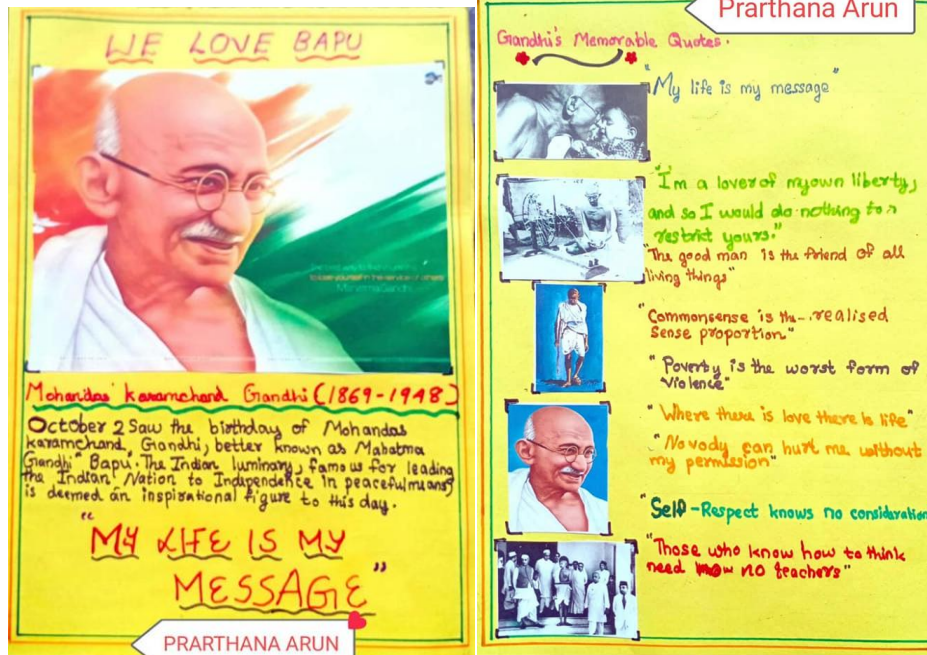 WE LOVE BAPU
Mohandas karamchand Gandhi (1869-1948)
October 2 Saw the birthday of Mohandas
karamchand, Gandhi, better known as Mahatma
Gandhi" Bapu. The Indian luminary, famous for leading
the Indian Nation to Independence in peacefulmeans
is deemed an inspirational figure to this day.
"MY LIFE IS MY
MESSAGE"
PRARTHANA ARUN
Prarthana Arun
Gandhi's Memorable Quotes.
"My life is my message"
"I'm a lover of my own liberty,
and so I would do nothing to
restrict yours."
"The good man is the friend of all
living things"
"Commonsense is the realised
Sense proportion."
"Poverty is the worst form of
Violence"
"Where there is love there is life"
"Novody can hurt me without
my permission"
"Self-Respect knows no consideration
"Those who know how to think
need no teachers"